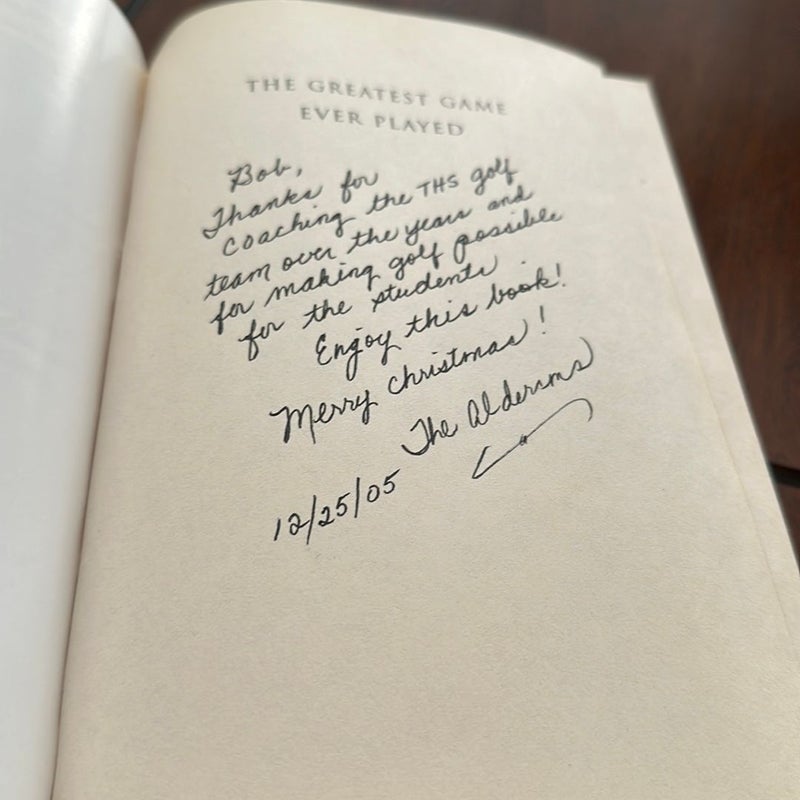 THE GREATEST GAME
EVER PLAYED
Bob,
Thanks for
coaching the THS golf
team over the years and
for making golf possible
for the students.
Enjoy this book!
Merry Christmas!
The
12/25/05